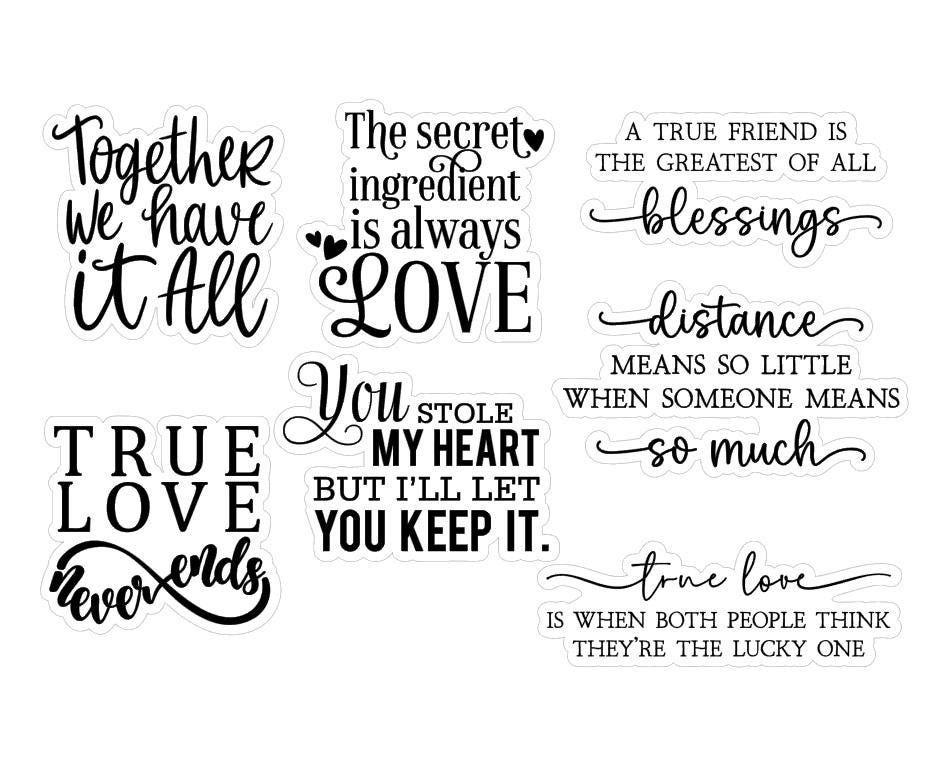 Together
We have
it All
The secret
ingredient
is always
LOVE
A TRUE FRIEND IS
THE GREATEST OF ALL
blessings
distance
MEANS SO LITTLE
WHEN SOMEONE MEANS
so much
TRUE
LOVE
never ends
You STOLE
MY HEART
BUT I'LL LET
YOU KEEP IT.
true love
IS WHEN BOTH PEOPLE THINK
THEY'RE THE LUCKY ONE